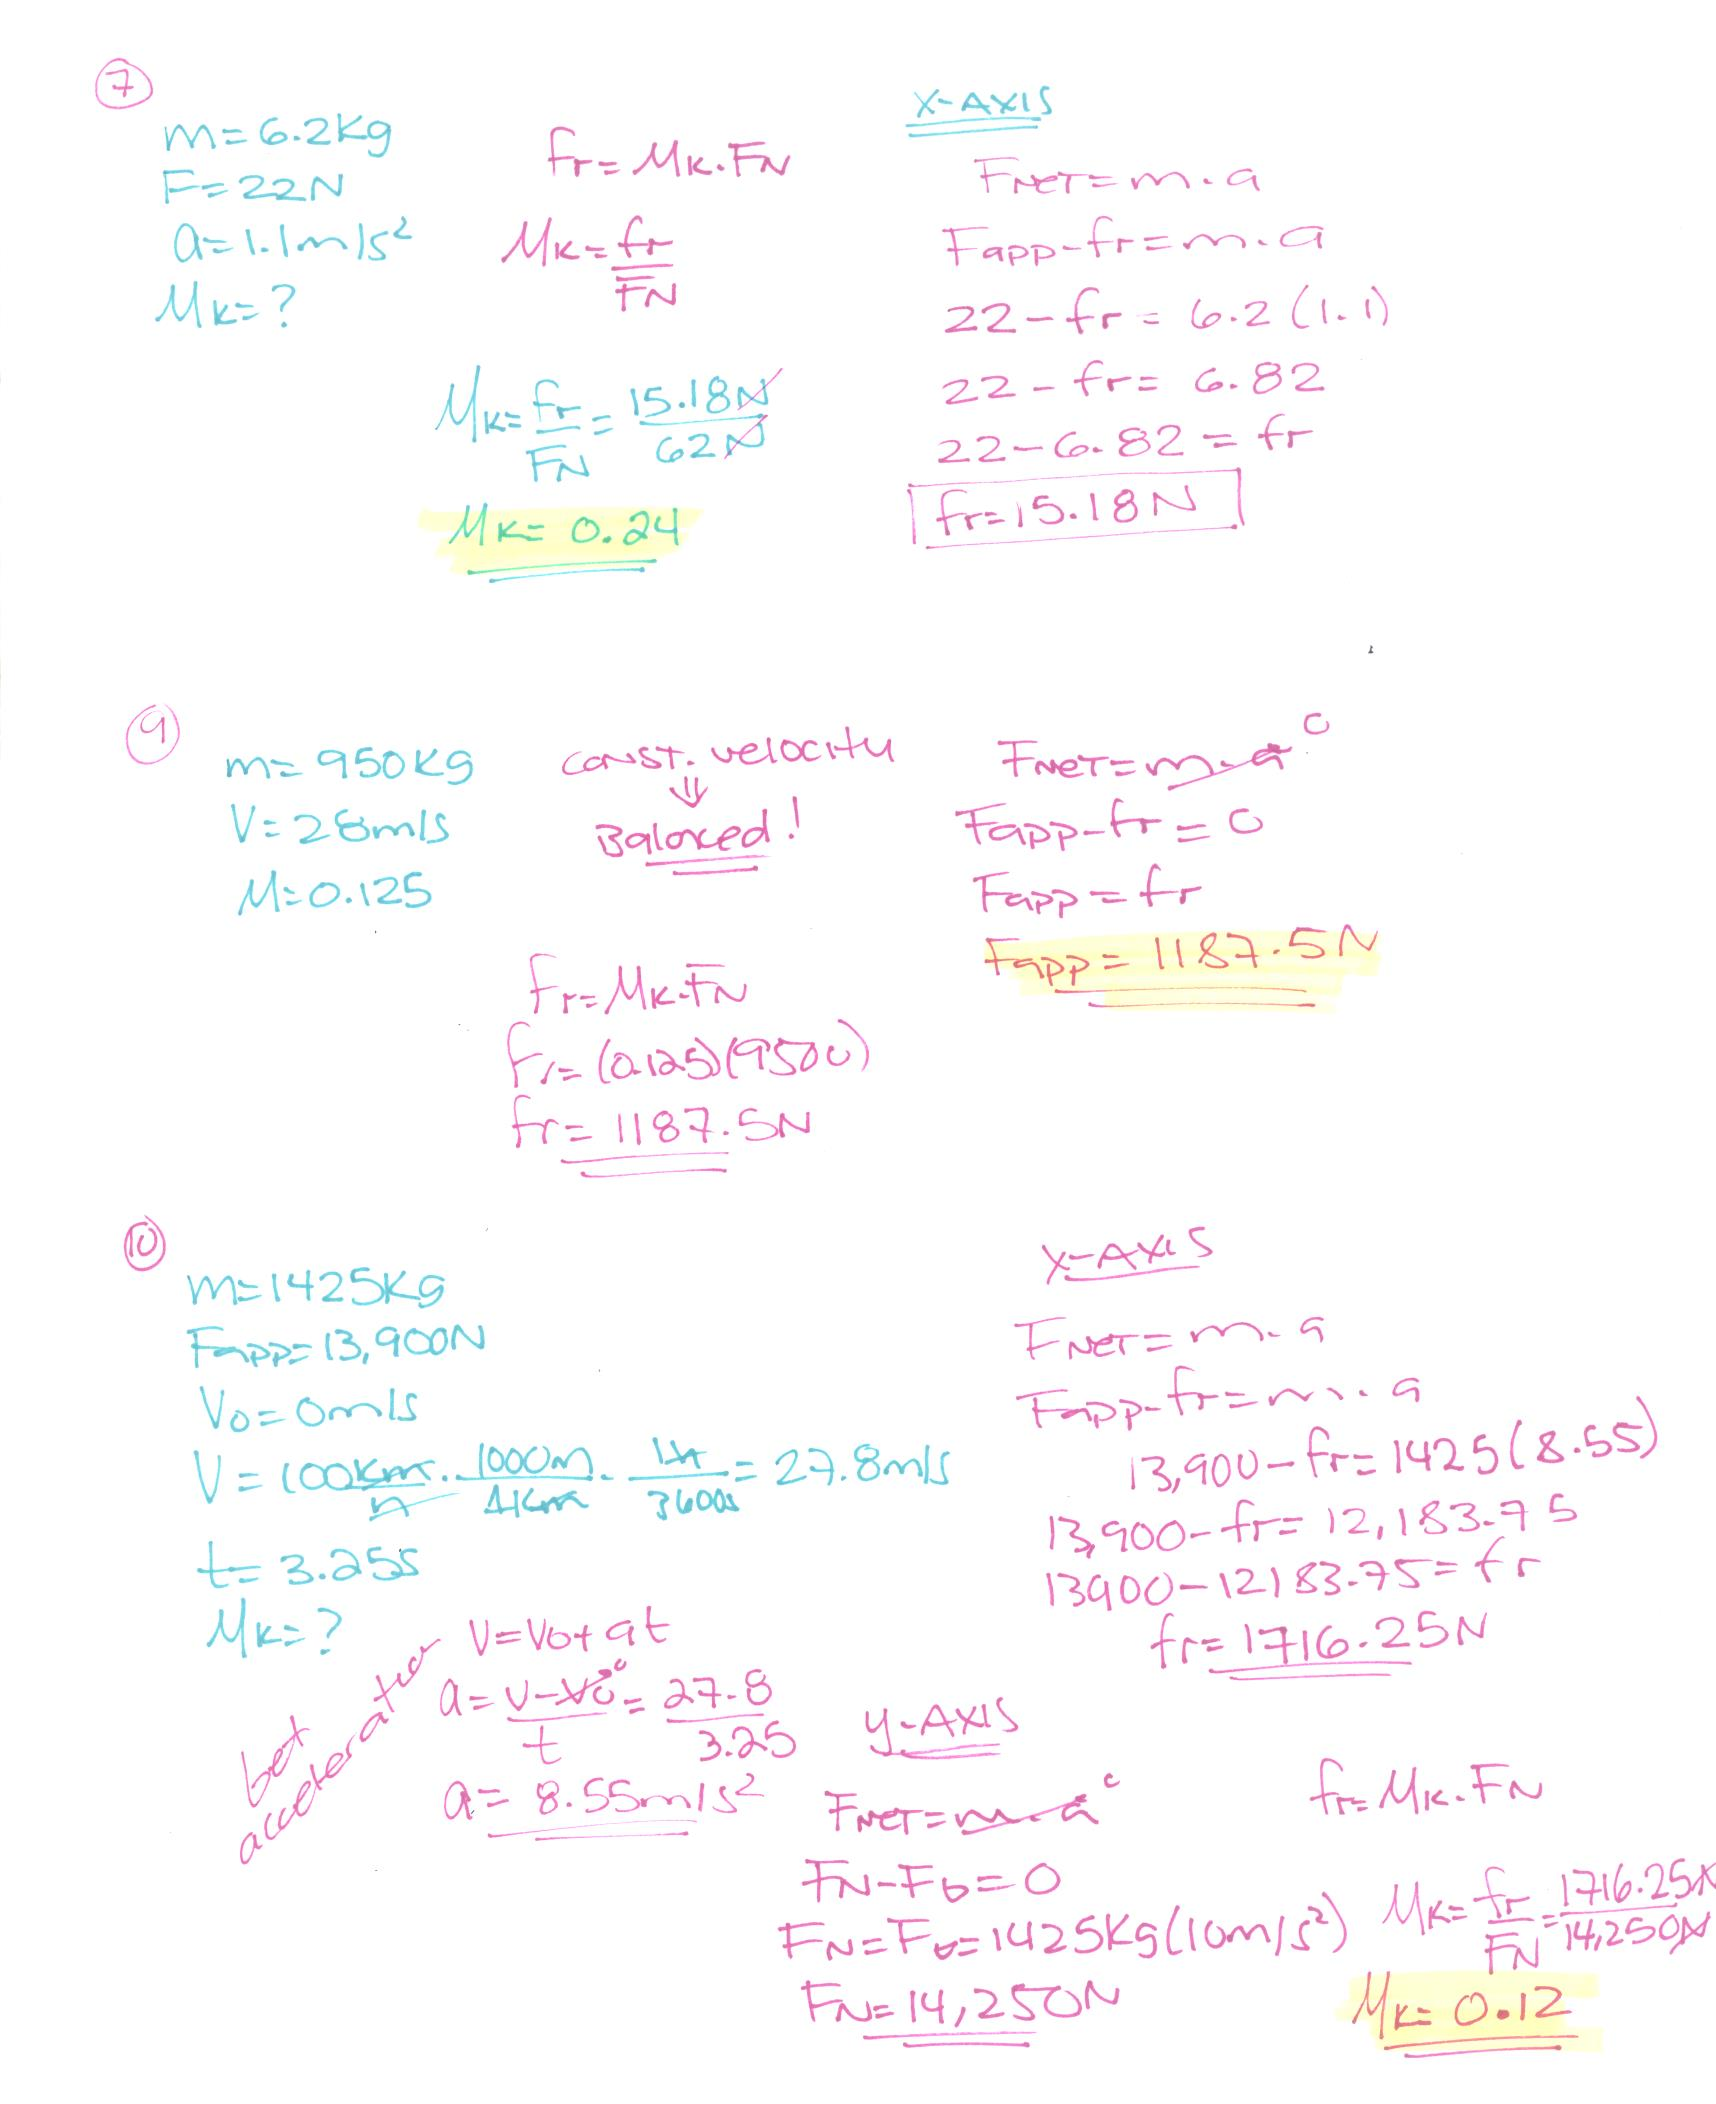 7
m=6.2kg
F=22N
a=1.1m/s²
Mk=?
fr=Mk.FN
Mk=fr/FN
Mk=fr/FN=15.18N/62N
Mk=0.24
X-AXIS
FNET=m.a
Fapp-fr=m.a
22-fr=6.2(1.1)
22-fr=6.82
22-6.82=fr
fr=15.18N
9
m=950kg
V=28m/s
M=0.125
const. velocity
⇓
Balanced!
fr=Mk.FN
fr=(0.125)(9500)
fr=1187.5N
FNET=m.a 0
Fapp-fr=0
Fapp=fr
Fapp=1187.5N
10
m=1425kg
Fapp=13,900N
Vo=0m/s
V=100km/h.1000m/1km.1h/3600s=27.8m/s
t=3.25s
Mk=?
get acceleration
V=Vo+at
a=V-Vo 0/t=27.8/3.25
a=8.55m/s²
X-AXIS
FNET=m.a
Fapp-fr=m.a
13,900-fr=1425(8.55)
13,900-fr=12,183.75
13900-12183.75=fr
fr=1716.25N
y-AXIS
FNET=m.a 0
FN-Fg=0
FN=Fg=1425kg(10m/s²)
FN=14,250N
fr=Mk.FN
Mk=fr/FN=1716.25N/14,250N
Mk=0.12